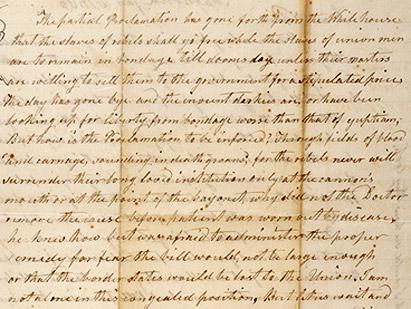 The partial Proclamation has gone forth from the White house
that the slaves of rebils shall go free while the slaves of union men
are to remain in bondage till dooms day unless their masters
are willing to sell them to the government for a stipulated price
the day has gone bye and the inocent darkeis are, or have been
looking up for liberty from bondage worse than that of egyptian,
But how is the Proclamation to be inforced? through fields of blood
and carnage, wounding in death ground, for the rebels never will
surrender their long loved institution only at the cannons
mouth or at the point of the bayonet, why did not the Doctor
remove the cause before patient was worn out by disease,
he knew how but was afraid to administer the proper
remedy for fear the bill would not be large enough
or that the border states would be lost to the Union. I am
not alone in this congealed position, But let us wait and